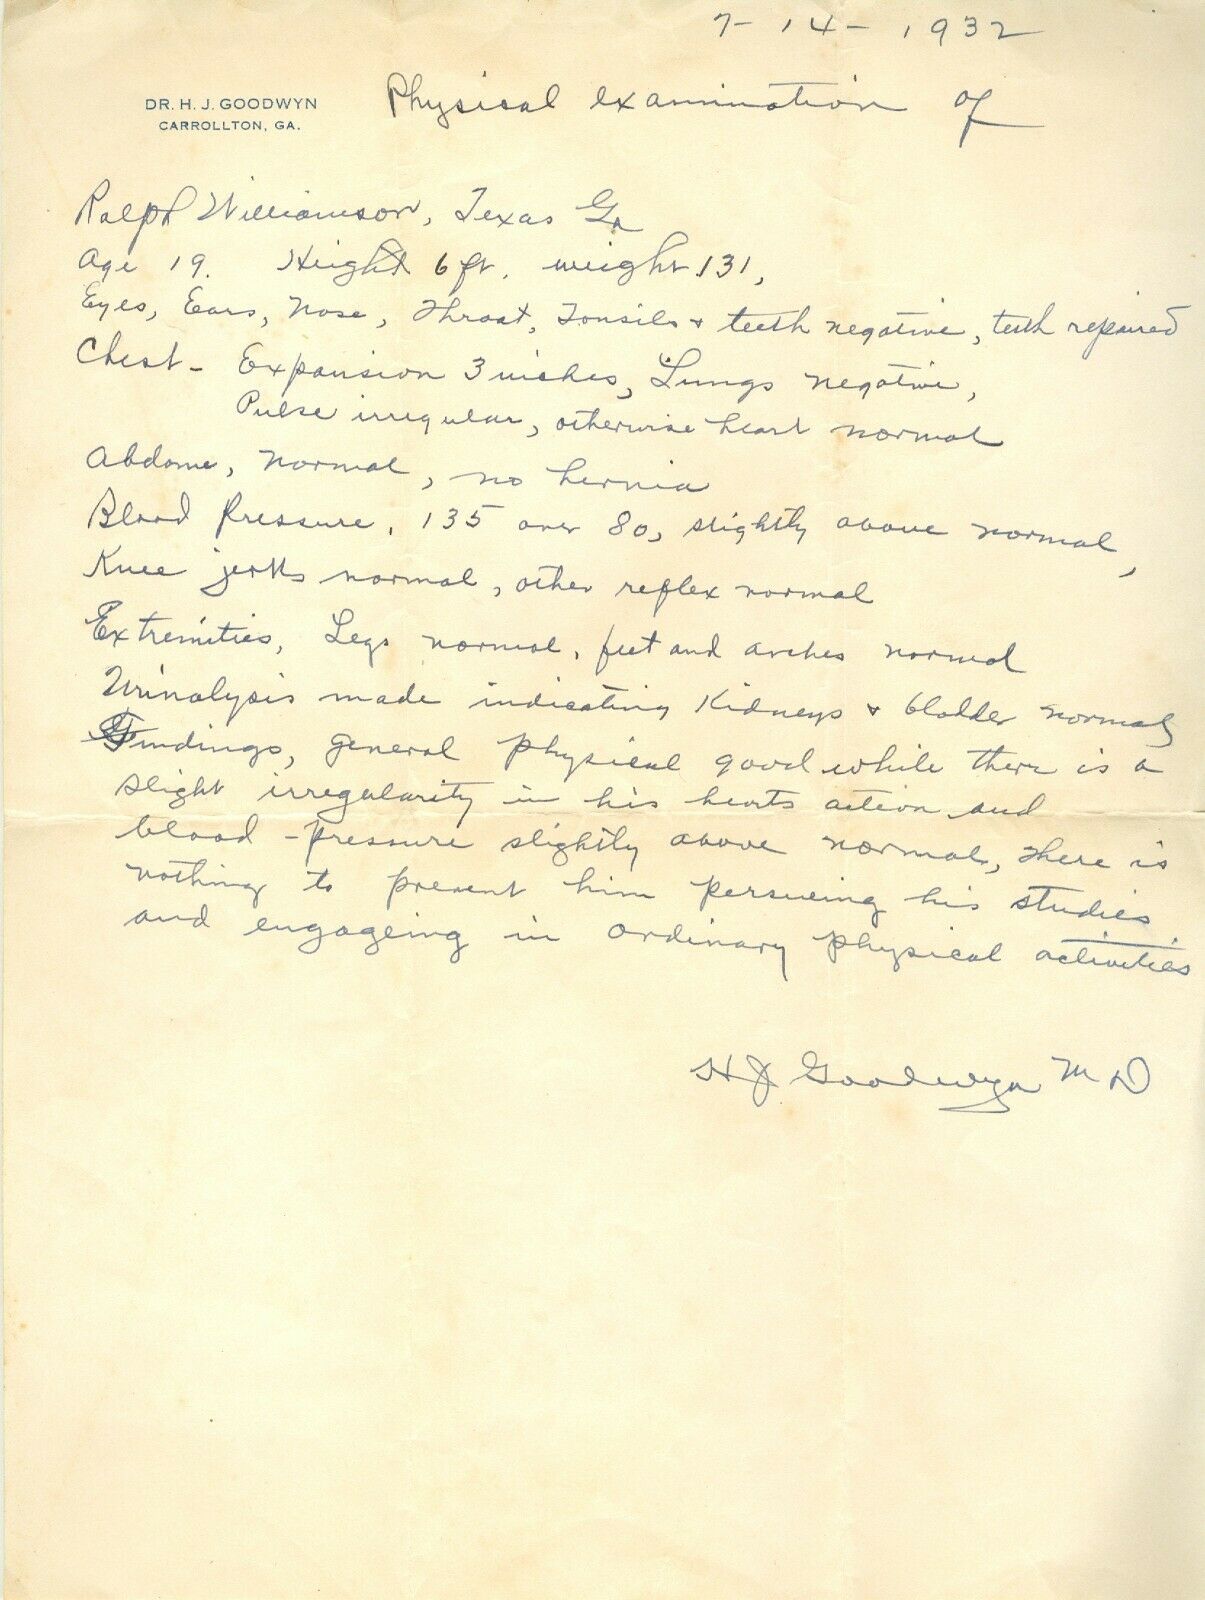 7-14-1932
DR. H. J. GOODWYN
CARROLLTON, GA.
Physical examination of
Ralph Williamson, Texas Ga
Age 19. Height 6 ft. weight 131,
Eyes, Ears, Nose, Throat, Tonsils + teeth negative, teeth repaired
Chest - Expansion 3 inches, Lungs negative,
Pulse irregular, otherwise heart normal
Abdome, normal, no hernia
Blood Pressure, 135 over 80, slightly above normal,
Knee jerks normal, other reflex normal
Extremities, Legs normal, feet and arches normal
Urinalysis made indicating Kidneys + bladder normal
Findings, general physical good while there is a
slight irregularity in his hearts action and
blood-pressure slightly above normal, there is
nothing to prevent him persueing his studies
and engageing in ordinary physical activities
H J Goodwyn M D